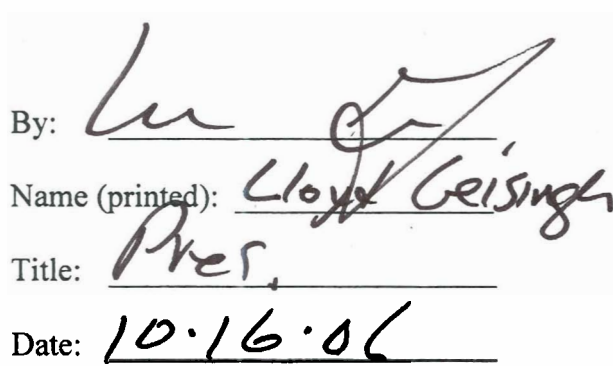 By:
Name (printed): Lloyd Geisingh
Title: Pres.
Date: 10.16.06